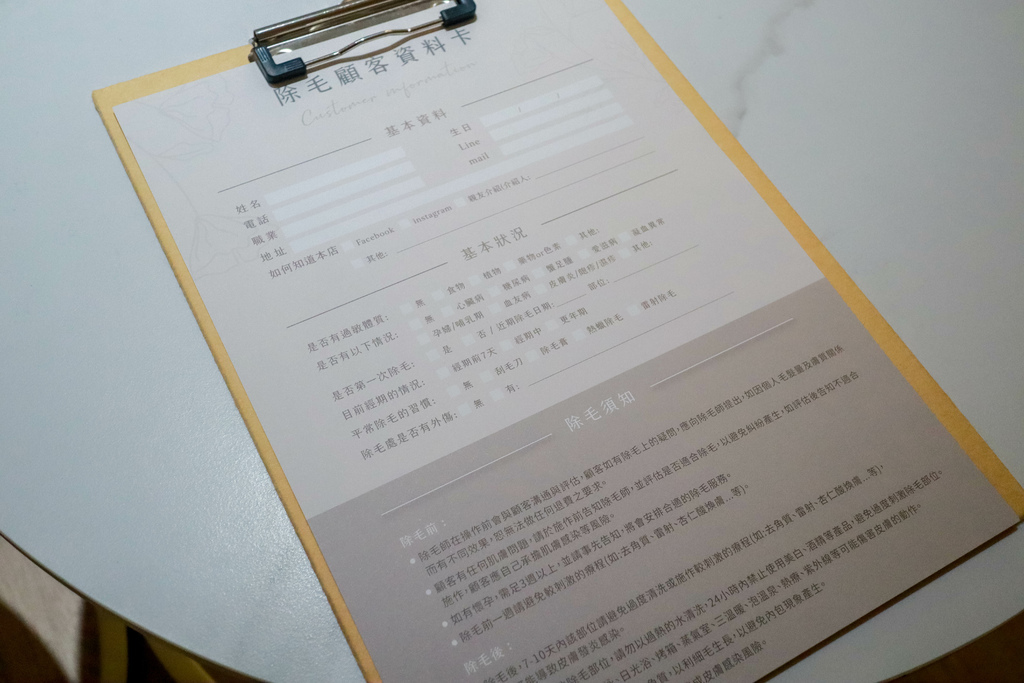 除毛顧客資料卡
Customer information
基本資料
姓名
生日 / /
電話
Line
職業
mail
地址
如何知道本店 Facebook instagram 親友介紹(介紹人:
其他:
基本狀況
是否有過敏體質: 無 食物 植物 藥物or色素 其他:
是否有以下情況: 無 心臟病 糖尿病 蟹足腫 愛滋病 凝血異常
孕婦/哺乳期 血友病 皮膚炎/皰疹/濕疹 其他:
是否第一次除毛: 是 否 / 近期除毛日期: 部位:
目前經期的情況: 經期前7天 經期中 更年期
平常除毛的習慣: 無 刮毛刀 除毛膏 熱蠟除毛 雷射除毛
除毛處是否有外傷: 無 有:
除毛須知
除毛前:
除毛師在操作前會與顧客溝通與評估,顧客如有除毛上的疑問,應向除毛師提出,如因個人毛髮量及膚質關係
而有不同效果,恕無法做任何退費之要求。
顧客有任何肌膚問題,請於施作前告知除毛師,並評估是否適合除毛,以避免糾紛產生,如評估後告知不適合
施作,顧客應自己承擔肌膚感染等風險。
如有懷孕,需足3週以上,並請事先告知,將會安排合適的除毛服務。
除毛前一週請避免較刺激的療程(如:去角質、雷射、杏仁酸換膚...等)。
除毛後:
除毛後,7-10天內該部位請避免過度清洗或施作較刺激的療程(如:去角質、雷射、杏仁酸換膚...等),
能導致皮膚發炎感染。
除毛部位,請勿以過熱的水清洗,24小時內禁止使用美白、酒精等產品,避免過度刺激除毛部位。
、日光浴、烤箱、蒸氣室、三溫暖、泡溫泉、熱療、紫外線等可能傷害皮膚的動作。
角質,以利細毛生長,以避免內包現象產生。
皮膚感染風險。